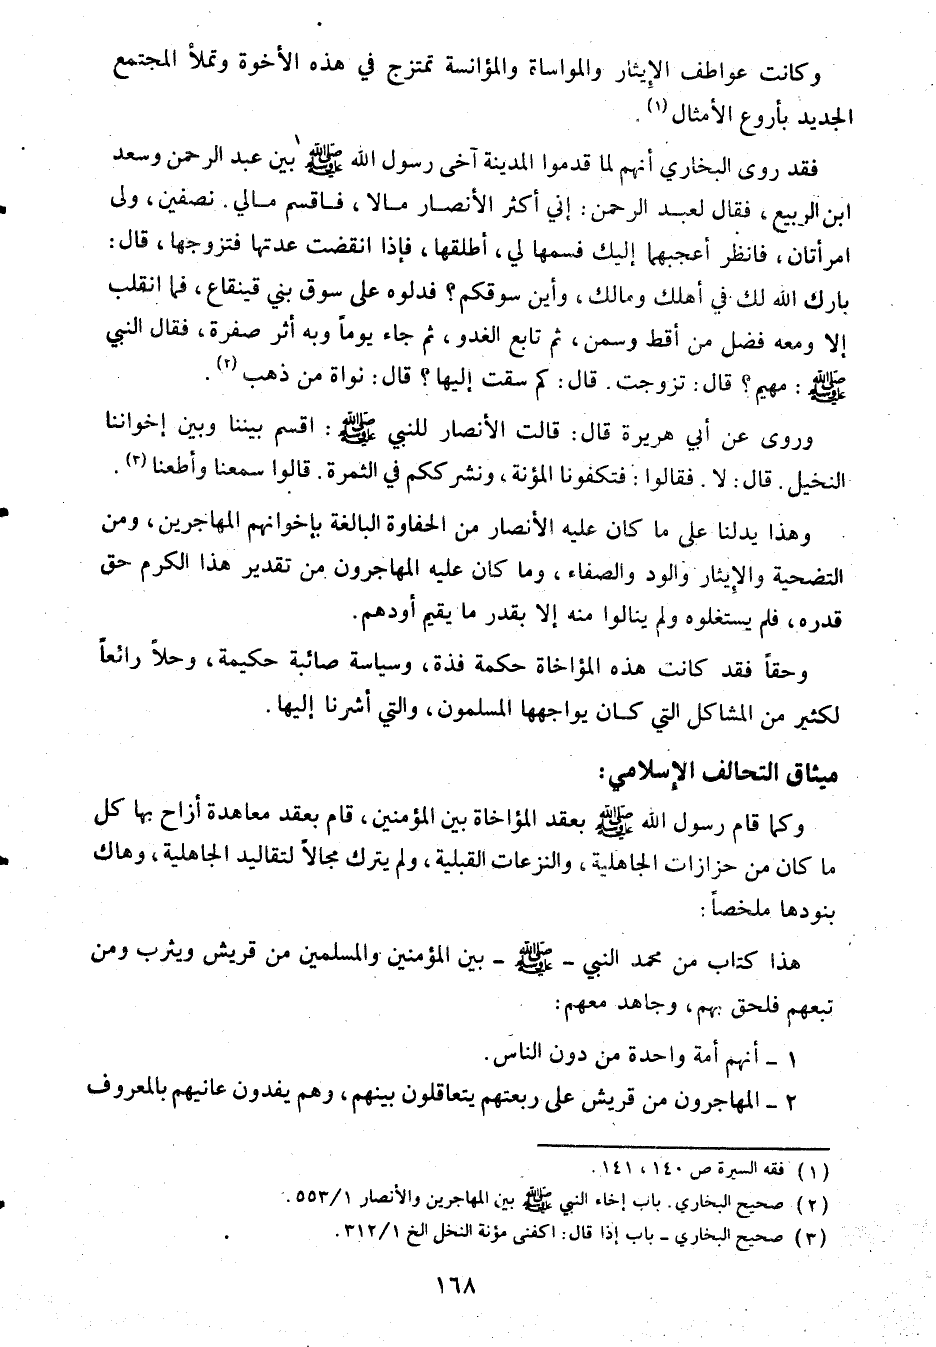 وكانت عواطف الإيثار والمواساة والمؤانسة تمتزج في هذه الأخوة وتملأ المجتمع
الجديد بأروع الأمثال (١) .
فقد روى البخاري أنهم لما قدموا المدينة آخى رسول الله ﷺ بين عبد الرحمن وسعد
ابن الربيع ، فقال لعبد الرحمن : إني أكثر الأنصار مالا ، فاقسم مالي . نصفين ، ولى
امرأتان ، فانظر أعجبهما إليك فسمها لي ، أطلقها ، فإذا انقضت عدتها فتزوجها ، قال :
بارك الله لك في أهلك ومالك ، وأين سوقكم ؟ فدلوه على سوق بني قينقاع ، فما انقلب
إلا ومعه فضل من أقط وسمن ، ثم تابع الغدو ، ثم جاء يوماً وبه أثر صفرة ، فقال النبي
ﷺ : مهيم ؟ قال : تزوجت . قال : كم سقت إليها ؟ قال : نواة من ذهب (٢) .
وروى عن أبي هريرة قال : قالت الأنصار للنبي ﷺ : اقسم بيننا وبين إخواننا
النخيل . قال : لا . فقالوا : فتكفونا المؤنة ، ونشرككم في الثمرة . قالوا سمعنا وأطعنا (٣) .
وهذا يدلنا على ما كان عليه الأنصار من الحفاوة البالغة بإخوانهم المهاجرين ، ومن
التضحية والإيثار والود والصفاء ، وما كان عليه المهاجرون من تقدير هذا الكرم حق
قدره ، فلم يستغلوه ولم ينالوا منه إلا بقدر ما يقيم أودهم .
وحقاً فقد كانت هذه المؤاخاة حكمة فذة ، وسياسة صائبة حكيمة ، وحلاً رائعاً
لكثير من المشاكل التي كان يواجهها المسلمون ، والتي أشرنا إليها .
ميثاق التحالف الإسلامي :
وكما قام رسول الله ﷺ بعقد المؤاخاة بين المؤمنين ، قام بعقد معاهدة أزاح بها كل
ما كان من حزازات الجاهلية ، والنزعات القبلية ، ولم يترك مجالاً لتقاليد الجاهلية ، وهاك
بنودها ملخصاً :
هذا كتاب من محمد النبي - ﷺ - بين المؤمنين والمسلمين من قريش ويثرب ومن
تبعهم فلحق بهم ، وجاهد معهم :
١ - أنهم أمة واحدة من دون الناس .
٢ - المهاجرون من قريش على ربعتهم يتعاقلون بينهم ، وهم يفدون عانيهم بالمعروف
(١) فقه السيرة ص ١٤٠ ، ١٤١ .
(٢) صحيح البخاري . باب إخاء النبي ﷺ بين المهاجرين والأنصار ٥٥٣/١ .
(٣) صحيح البخاري - باب إذا قال : اكفنى مؤنة النخل الخ ٣١٢/١ .
١٦٨